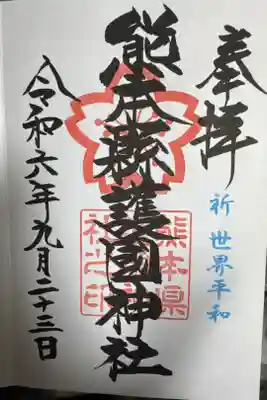 奉拝
祈 世界平和
熊本縣護國神社
熊本県
社之印
令和六年九月二十三日